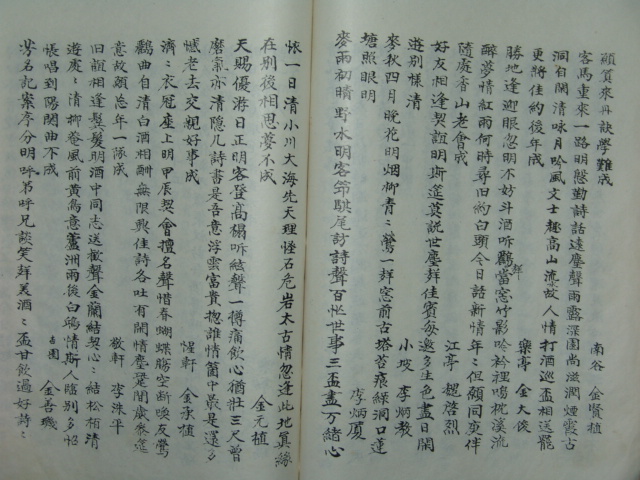 顧質來丹訣學難成
南谷 金賢植
客馬重來一路明慇勤詩話遠塵聲雨露深園尚滋潤煙霞古
洞自閑清咏月吟風文士趣高山流水故人情打酒巡盃相送罷
更將佳約後年成
樂亭 金大俊
勝地逢迎眼忽明不好斗酒听鸝聲窓竹影吟衿裡鳴枕溪流
醉夢情紅雨何時尋旧約白頭今日話新情年年但願同更伴
隨處香山老會成
江亭 趙啓烈
好友相逢契誼明斯筵莫說世塵群佳賓每邀多生色盡日開
遊別樣清
小坡 李炳教
麥秋四月晚花明烟柳青青鶯一群窓前古塔苔痕綠洞口蓮
塘照眼明
李炳厦
麥雨初晴野水明客節騏尾訪詩聲百忙世事三盃盡万緒心
懷一日清小川大海先天理怪石危岩太古情忽逢此地眞緣
在別後相思夢不成
金元植
天賜優游日正明客登高榻听絃聲一樽蒲飲心猶壯三尺曾
磨氣亦清隱几詩書是吾意浮雲富貴揔誰情箇中最是還多
憾老去交親好事成
惺軒 金承植
濟濟衣冠座上明甲辰契會擅名聲惜春蝴蝶勝空斷喚友鶯
鸝曲自清白酒相酬無限興佳詩各吐有閑情塵是閒歲參差
意故願忘年一隊成
敬軒 李洙平
旧觀相逢鬂髮明酒中同志送歡聲金蘭結契心心結松栢清
遊處處清柳巷風前黃鳥意蘆洲雨後白鷗情斯人臨別多怊
悵唱到陽關曲不成
吉圃 金善璣
芳名記案序分明呼弟呼兄談笑群美酒酒盃甘飲過好詩詩